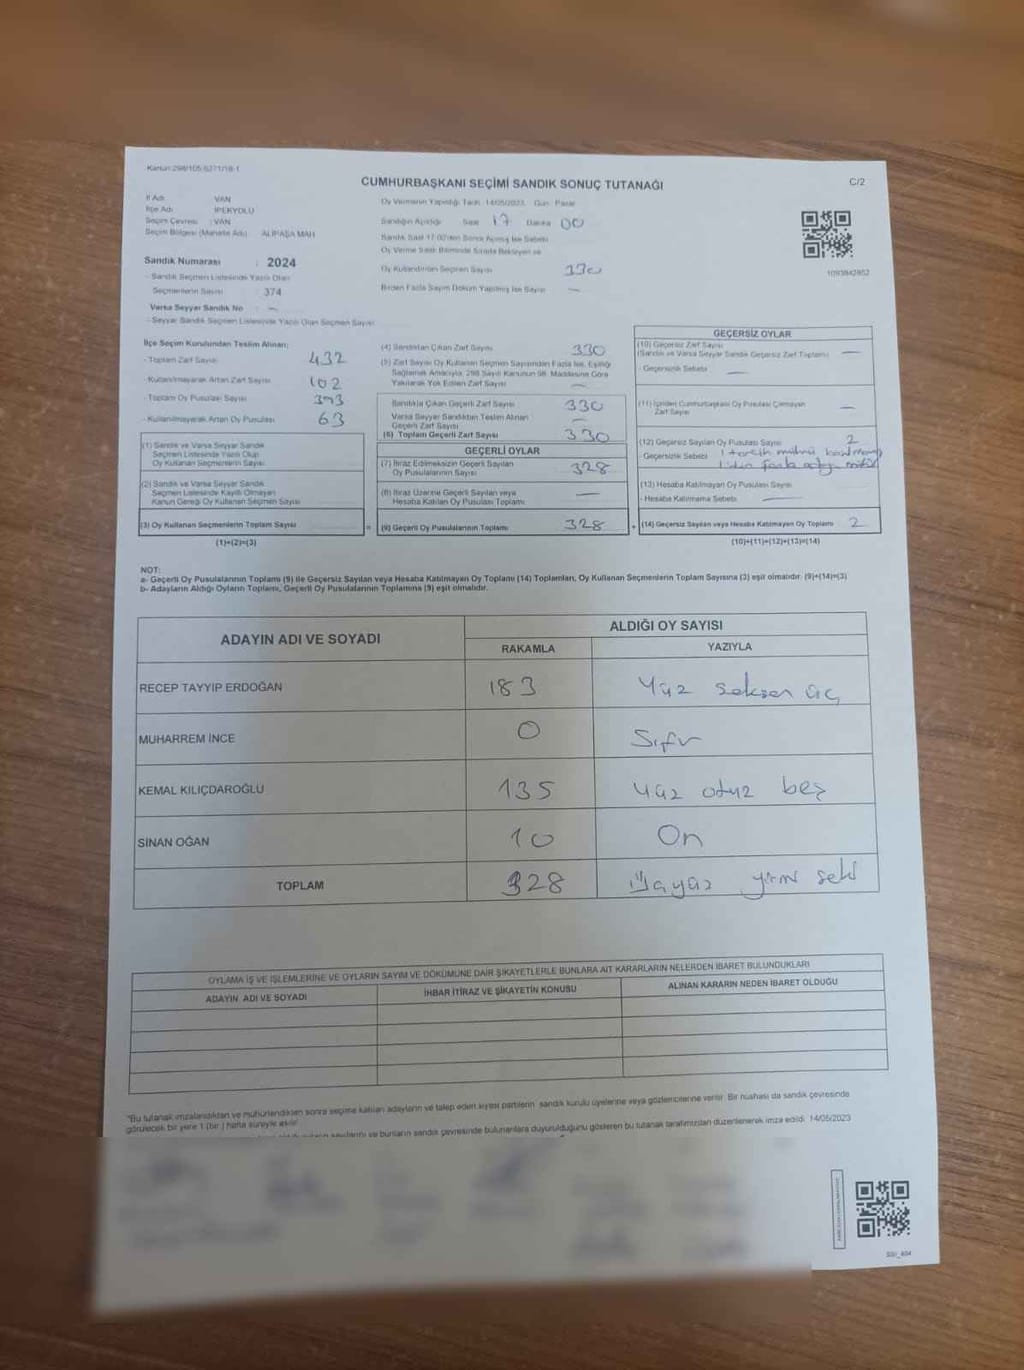 Kanun:298/105-6271/18-1
CUMHURBAŞKANI SEÇİMİ SANDIK SONUÇ TUTANAĞI
C/2
İl Adı : VAN
İlçe Adı : İPEKYOLU
Seçim Çevresi : VAN
Seçim Bölgesi (Mahalle Adı) : ALİPAŞA MAH
Sandık Numarası : 2024
- Sandık Seçmen Listesinde Yazılı Olan
Seçmenlerin Sayısı : 374
Varsa Seyyar Sandık No : —
- Seyyar Sandık Seçmen Listesinde Yazılı Olan Seçmen Sayısı:
Oy Vermenin Yapıldığı Tarih: 14/05/2023 Gün: Pazar
Sandığın Açıldığı Saat 17 Dakika 00
Sandık Saat 17:00'den Sonra Açılmış İse Sebebi
Oy Verme Saati Bitiminde Sırada Bekleyen ve
Oy Kullandırılan Seçmen Sayısı 330
Birden Fazla Sayım Döküm Yapılmış İse Sayısı —
1093942952
İlçe Seçim Kurulundan Teslim Alınan;
- Toplam Zarf Sayısı 432
- Kullanılmayarak Artan Zarf Sayısı 102
- Toplam Oy Pusulası Sayısı 393
- Kullanılmayarak Artan Oy Pusulası 63
(1) Sandık ve Varsa Seyyar Sandık
Seçmen Listesinde Yazılı Olup
Oy Kullanan Seçmenlerin Sayısı
(2) Sandık ve Varsa Seyyar Sandık
Seçmen Listesinde Kayıtlı Olmayan
Kanun Gereği Oy Kullanan Seçmen Sayısı
(3) Oy Kullanan Seçmenlerin Toplam Sayısı =
(1)+(2)=(3)
(4) Sandıktan Çıkan Zarf Sayısı 330
(5) Zarf Sayısı Oy Kullanan Seçmen Sayısından Fazla İse, Eşitliği
Sağlamak Amacıyla, 298 Sayılı Kanunun 98. Maddesine Göre
Yakılarak Yok Edilen Zarf Sayısı —
Sandıkta Çıkan Geçerli Zarf Sayısı 330
Varsa Seyyar Sandıktan Teslim Alınan
Geçerli Zarf Sayısı —
(6) Toplam Geçerli Zarf Sayısı 330
GEÇERLİ OYLAR
(7) İtiraz Edilmeksizin Geçerli Sayılan
Oy Pusulalarının Sayısı 328
(8) İtiraz Üzerine Geçerli Sayılan veya
Hesaba Katılan Oy Pusulası Toplamı —
(9) Geçerli Oy Pusulalarının Toplamı 328 +
GEÇERSİZ OYLAR
(10) Geçersiz Zarf Sayısı
(Sandık ve Varsa Seyyar Sandık Geçersiz Zarf Toplamı) —
- Geçersizlik Sebebi —
(11) İçinden Cumhurbaşkanı Oy Pusulası Çıkmayan
Zarf Sayısı —
(12) Geçersiz Sayılan Oy Pusulası Sayısı 2
- Geçersizlik Sebebi 1 tercih mührü
fazla
(13) Hesaba Katılmayan Oy Pusulası Sayısı
- Hesaba Katılmama Sebebi —
(14) Geçersiz Sayılan veya Hesaba Katılmayan Oy Toplamı 2
(10)+(11)+(12)+(13)=(14)
NOT:
a- Geçerli Oy Pusulalarının Toplamı (9) ile Geçersiz Sayılan veya Hesaba Katılmayan Oy Toplamı (14) Toplamları, Oy Kullanan Seçmenlerin Toplam Sayısına (3) eşit olmalıdır. (9)+(14)=(3)
b- Adayların Aldığı Oyların Toplamı, Geçerli Oy Pusulalarının Toplamına (9) eşit olmalıdır.
ADAYIN ADI VE SOYADI
ALDIĞI OY SAYISI
RAKAMLA
YAZIYLA
RECEP TAYYİP ERDOĞAN 183 Yüz seksen üç
MUHARREM İNCE 0 Sıfır
KEMAL KILIÇDAROĞLU 135 Yüz otuz beş
SİNAN OĞAN 10 On
TOPLAM 328 Üçyüz yirmi sekiz
OYLAMA İŞ VE İŞLEMLERİNE VE OYLARIN SAYIM VE DÖKÜMÜNE DAİR ŞİKAYETLERLE BUNLARA AİT KARARLARIN NELERDEN İBARET BULUNDUKLARI
ADAYIN ADI VE SOYADI
İHBAR İTİRAZ VE ŞİKAYETİN KONUSU
ALINAN KARARIN NEDEN İBARET OLDUĞU
"Bu tutanak imzalandıktan ve mühürlendikten sonra seçime katılan adayların ve talep eden siyasi partilerin sandık kurulu üyelerine veya gözlemcilerine verilir. Bir nüshası da sandık çevresinde
görülecek bir yere 1 (bir) hafta süreyle asılır.
ve bunların sandık çevresinde bulunanlara duyurulduğunu gösteren bu tutanak tarafımızdan düzenlenerek imza edildi. 14/05/2023